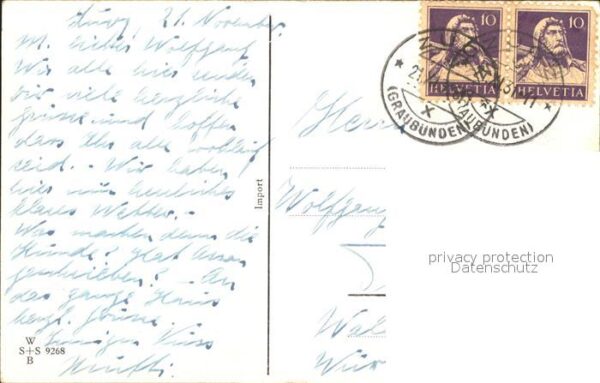 21. November
M. lieber Wolfgang
Wir alle hier senden
dir viele herzliche
Grüsse und hoffen
dass Ihr alle wohlauf
seid. - Wir haben
hier nun herrliches
klares Wetter. -
Was machen denn die
Hunde? Hat
geschrieben? - An
das ganze Haus
herzl. Grüsse.
Innigen Kuss
W
S+S 9268
B
Import
10 10
HELVETIA HELVETIA
(GRAUBÜNDEN)
(GRAUBÜNDEN)
Herrn
Wolfgang
privacy protection
Datenschutz